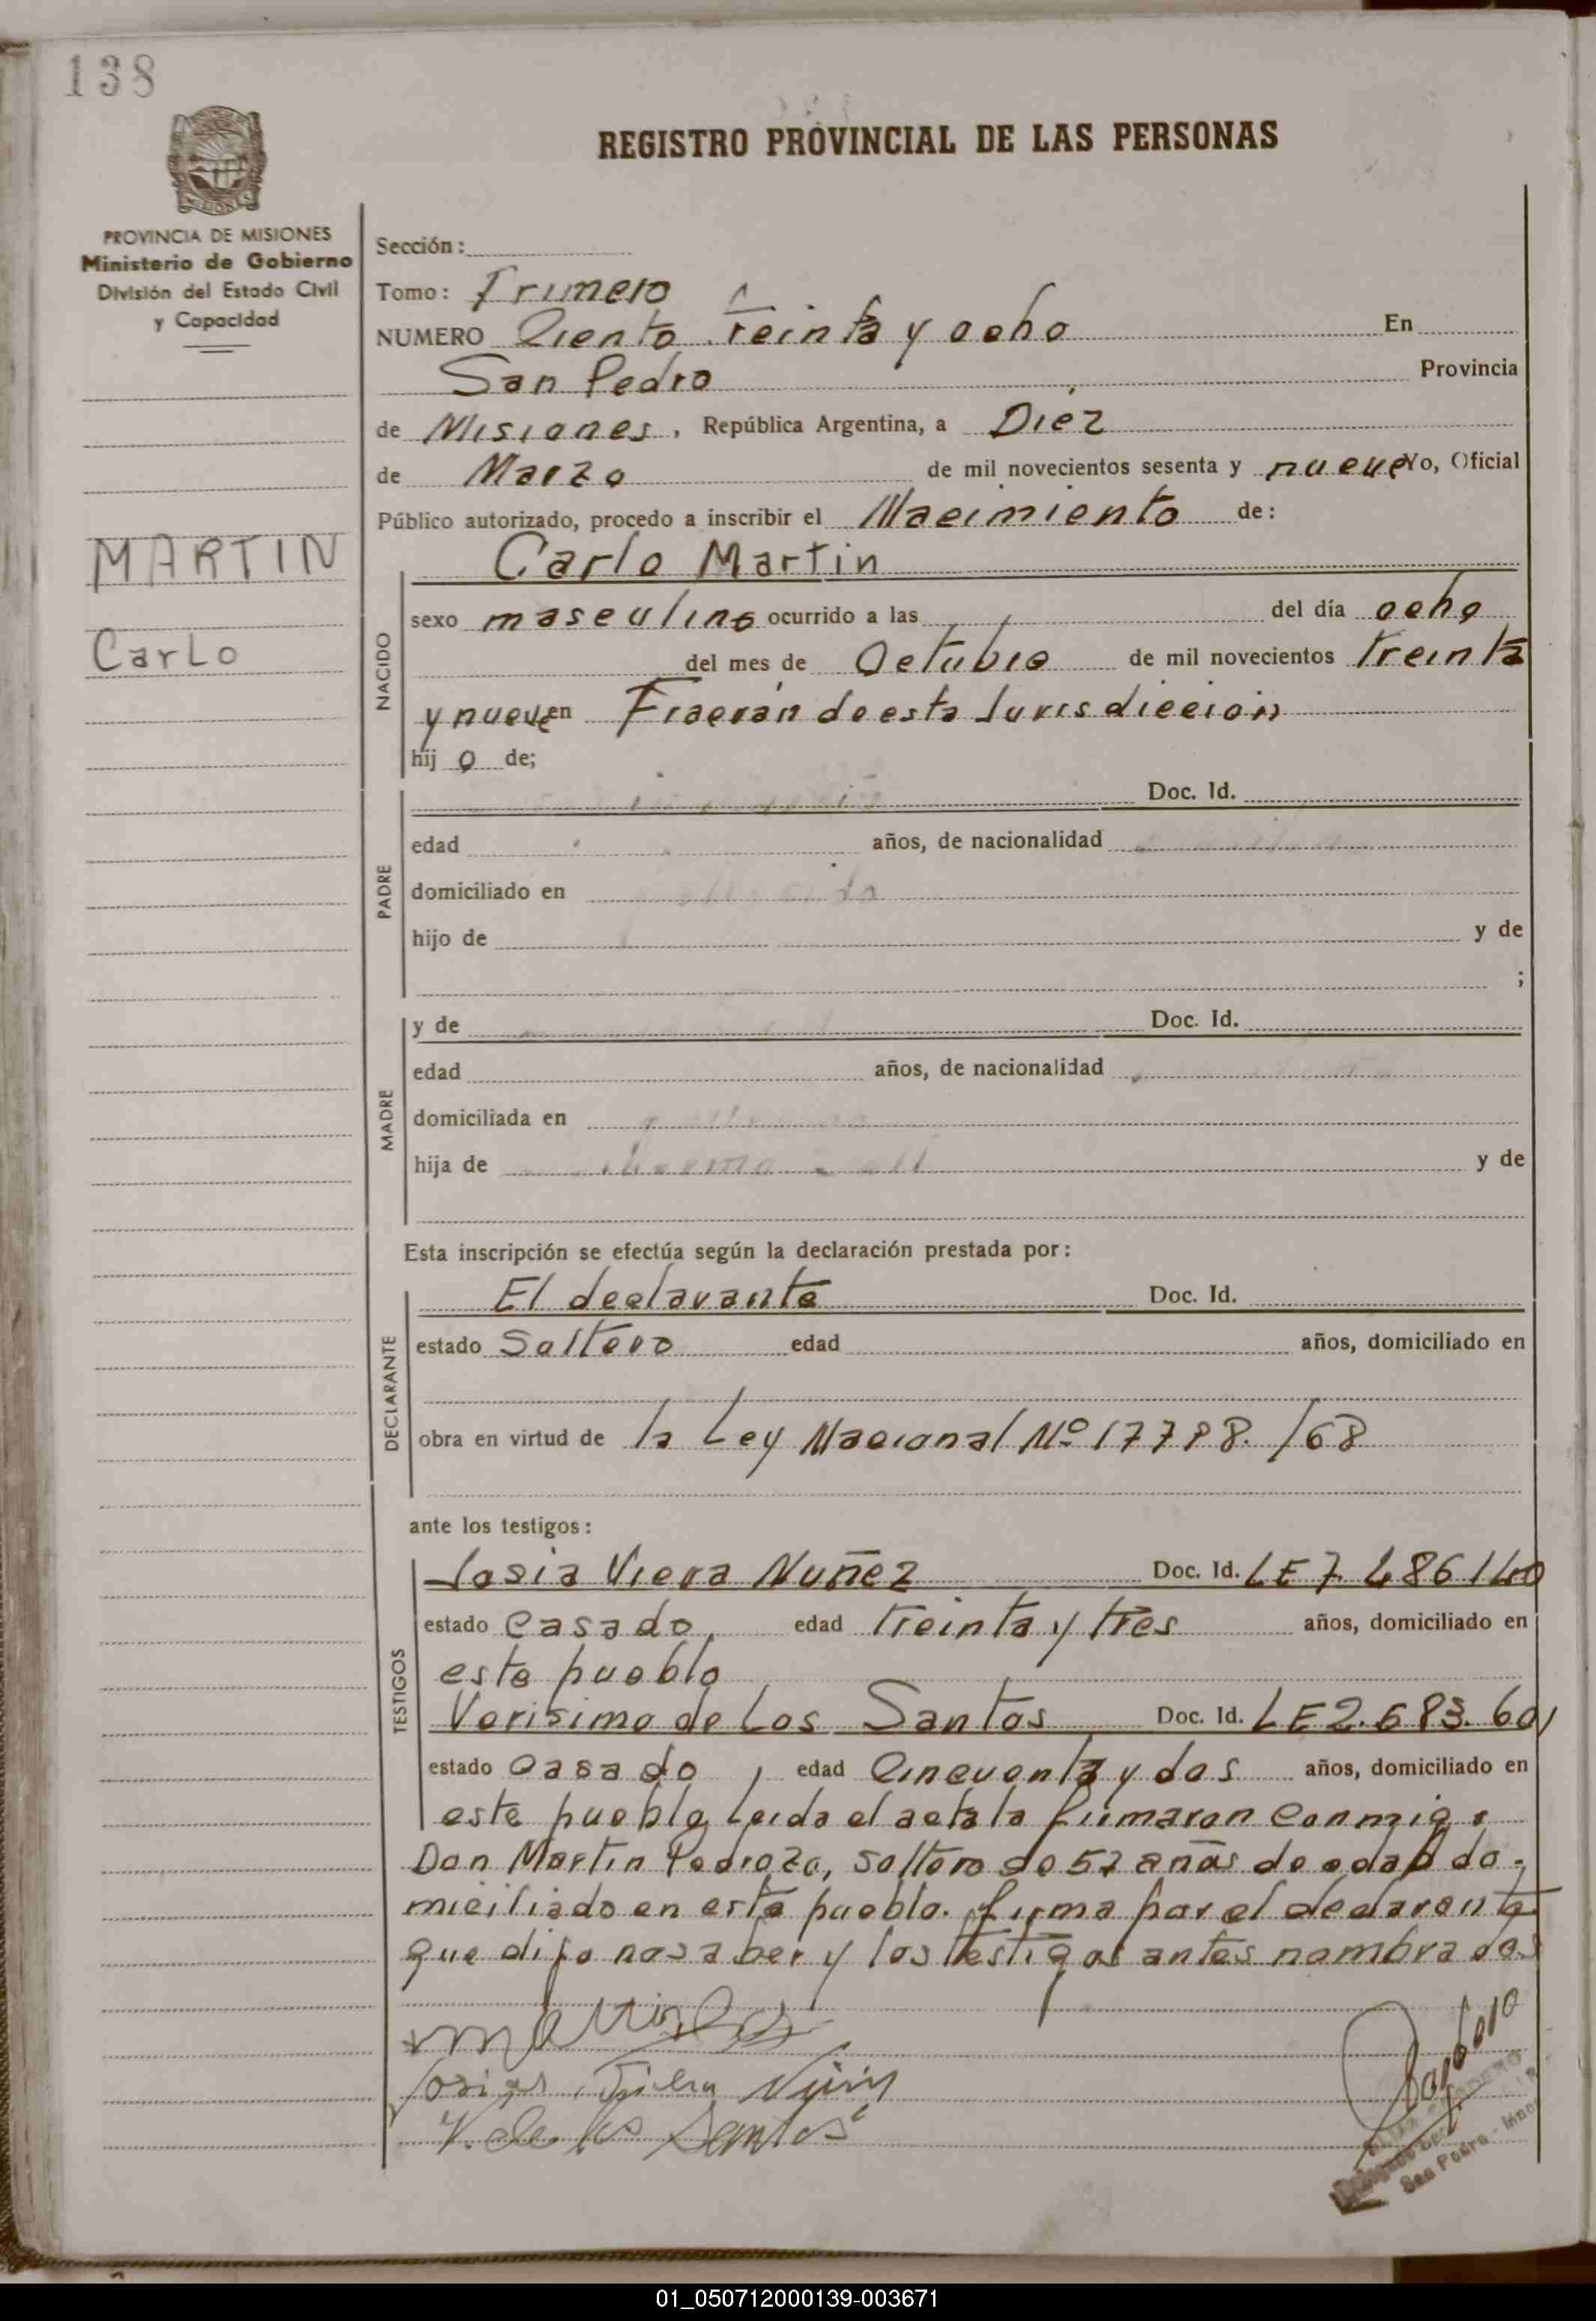 138
REGISTRO PROVINCIAL DE LAS PERSONAS
MISIONES
PROVINCIA DE MISIONES
Ministerio de Gobierno
División del Estado Civil
y Capacidad
MARTIN
Carlo
Sección:
Tomo: Primero
NUMERO Ciento treinta y ocho En
San Pedro Provincia
de Misiones, República Argentina, a Diez
de Marzo de mil novecientos sesenta y nueve Yo, Oficial
Público autorizado, procedo a inscribir el Nacimiento de:
Carlo Martin
NACIDO
sexo masculino ocurrido a las del día ocho
del mes de Octubre de mil novecientos treinta
y nueve en Fracrán de esta Jurisdicción
hij o de;
PADRE
Doc. Id.
edad años, de nacionalidad
domiciliado en
hijo de y de
;
MADRE
y de Doc. Id.
edad años, de nacionalidad
domiciliada en
hija de y de
Esta inscripción se efectúa según la declaración prestada por:
DECLARANTE
El declarante Doc. Id.
estado Soltero edad años, domiciliado en
obra en virtud de la Ley Nacional Nº 17798. /68
ante los testigos:
TESTIGOS
Josia Viera Nuñez Doc. Id. LE 7.486140
estado casado, edad treinta y tres años, domiciliado en
este pueblo
Verisimo de Los Santos Doc. Id. LE 2.683.601
estado casado, edad cincuenta y dos años, domiciliado en
este pueblo Leida el acta la firmaron conmigo
Don Martin Pedrozo, soltero de 52 años de edad do-
miciliado en este pueblo. firma por el declarante
que dijo no saber y los testigos antes nombrados
V. de los Santos
San Pedro - Mnes
01_050712000139-003671